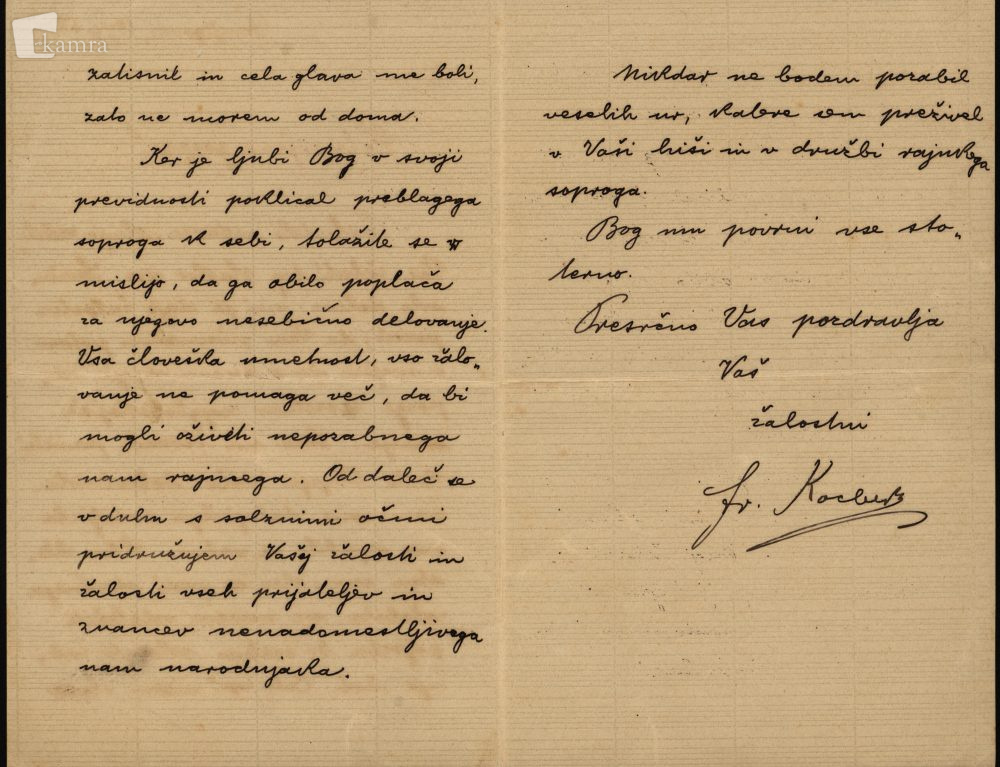 kamra
zatisnil in cela glava me boli,
zato ne morem od doma.
Ker je ljubi Bog v svoji
previdnosti poklical preblagega
soproga k sebi, tolažite se v
mislijo, da ga obilo poplača
za njegovo nesebično delovanje.
Vsa človeška umetnost, vso žalo„
vanje ne pomaga več, da bi
mogli oživeti nepozabnega
nam rajncega. Od daleč se
v duhu s solznimi očmi
pridružujem Vašej žalosti in
žalosti vseh prijateljev in
znancev nenadomestljivega
nam narodnjaka.
Nikdar ne bodem pozabil
veselih ur, katere sem preživel
v Vaši hiši in v družbi rajnkega
soproga.
Bog mu povrni vse sto„
terno.
Presrčno Vas pozdravlja
Vaš
žalostni
Fr. Kocbek